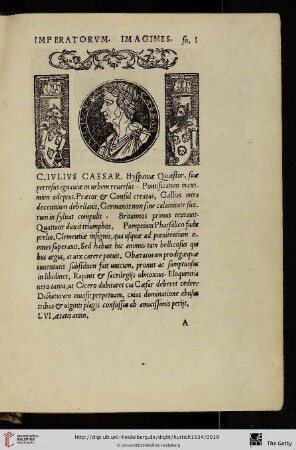 IMPERATORVM. IMAGINES. fo. I
C. IVLIVS CAESAR. Hyspaniæ Quæstor, suæ
pertesus ignauiæ in urbem reuersus. Pontificatum maxi-
mum adeptus. Prætor & Consul creatus, Gallias intra
decennium debellauit, Germanos non sine calamitate suo-
rum in syluas compulit. Britannos primus tentauit.
Quattuor duxit triumphos, Pompeium Pharsalico fudit
prælio, Clementiæ insignis, qua usque ad pœnitentiam o-
mnes superauit, Sed habuit hic animus tam bellicosus qui-
bus argui, at uix carere potuit. Obæratorum prodigæque
iuuentutis subsidium fuit unicum, pronus ac sumptuosus
in libidines, Rapinis & sacrilegijs obnoxius. Eloquentia
uero tanta, ut Cicero dubitaret cui Cæsar deberet cedere
Dictaturam inuasit perpetuam, cuius dominatione abusus
tribus & uiginti plagis confossus ab amicissimis perijt,
LVI, ætatis anno.
A
http://digi.ub.uni-heidelberg.de/diglit/huttich1534/0019
© Universitätsbibliothek Heidelberg
The Getty